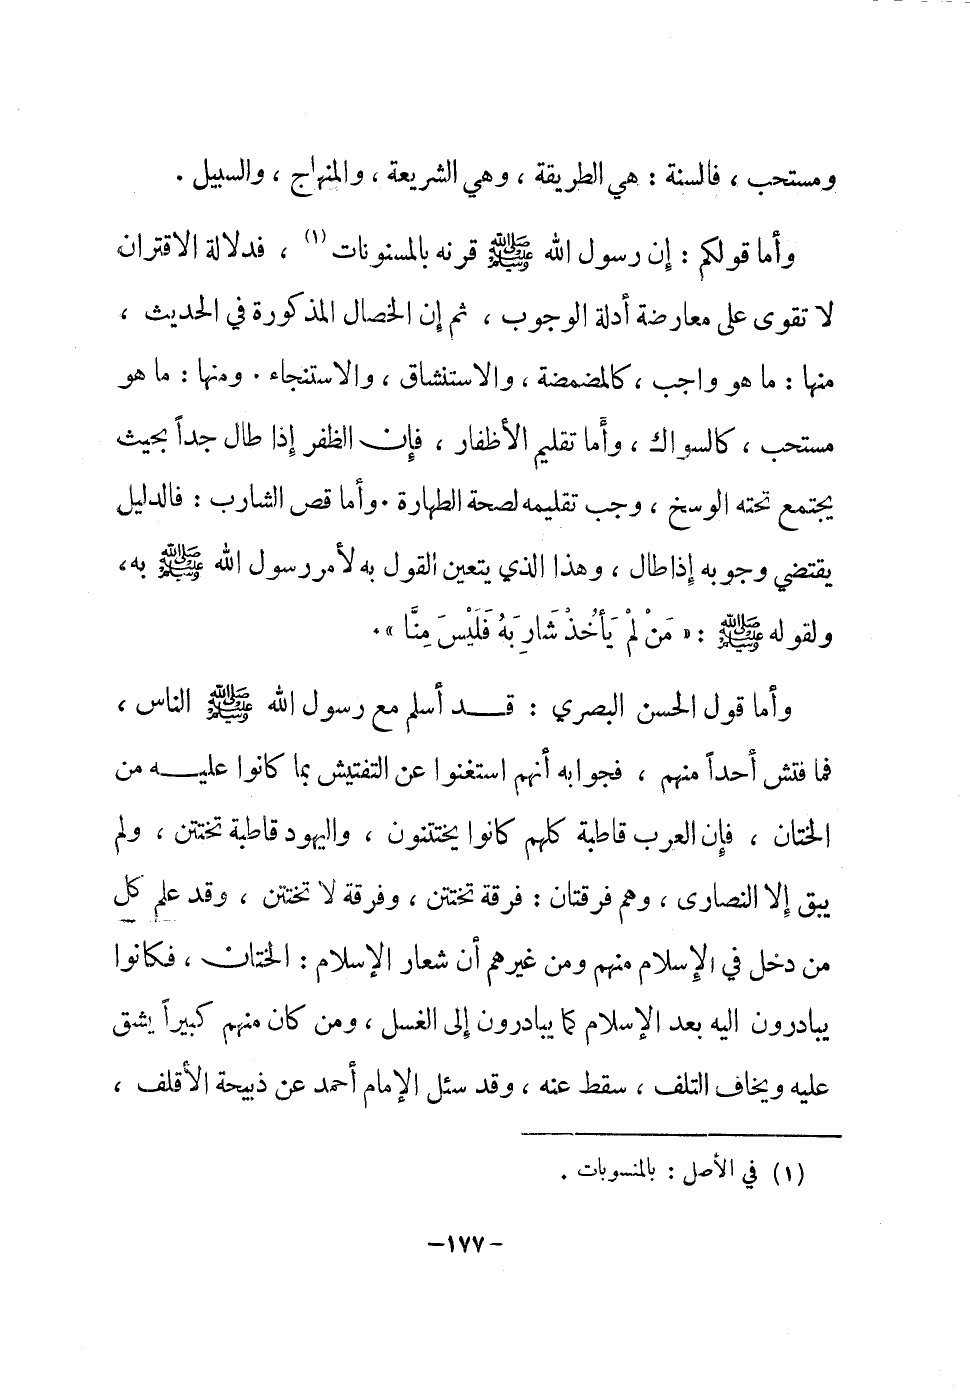 ومستحب ، فالسنة : هي الطريقة ، وهي الشريعة ، والمنهاج ، والسبيل .
وأما قولكم : إن رسول الله ﷺ قرنه بالمسنونات (١) ، فدلالة الاقتران
لا تقوى على معارضة أدلة الوجوب ، ثم إن الخصال المذكورة في الحديث ،
منها : ما هو واجب ، كالمضمضة ، والاستنشاق ، والاستنجاء . ومنها : ما هو
مستحب ، كالسواك ، وأما تقليم الأظفار ، فإن الظفر إذا طال جداً بحيث
يجتمع تحته الوسخ ، وجب تقليمه لصحة الطهارة . وأما قص الشارب : فالدليل
يقتضي وجوبه إذا طال ، وهذا الذي يتعين القول به لأمر رسول الله ﷺ به ،
ولقوله ﷺ : « مَنْ لَمْ يَأْخُذْ شَارِبَهُ فَلَيْسَ مِنَّا » .
وأما قول الحسن البصري : قد أسلم مع رسول الله ﷺ الناس ،
فما فتش أحداً منهم ، فجوابه أنهم استغنوا عن التفتيش بما كانوا عليه من
الختان ، فإن العرب قاطبة كلهم كانوا يختتنون ، واليهود قاطبة تختتن ، ولم
يبق إلا النصارى ، وهم فرقتان : فرقة تختتن ، وفرقة لا تختتن ، وقد علم كل
من دخل في الإسلام منهم ومن غيرهم أن شعار الإسلام : الختان ، فكانوا
يبادرون اليه بعد الإسلام كما يبادرون إلى الغسل ، ومن كان منهم كبيراً يشق
عليه ويخاف التلف ، سقط عنه ، وقد سئل الإمام أحمد عن ذبيحة الأقلف ،
(١) في الأصل : بالمنسوبات .
-١٧٧-